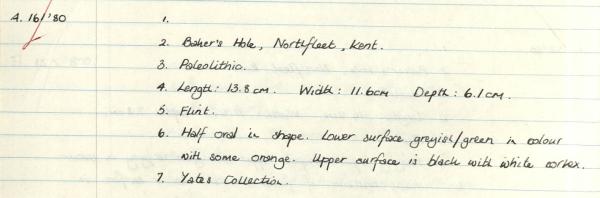 A. 16/'80 1.
2. Baker's Hole, Northfleet, Kent.
3. Paleolithic.
4. Length: 13.8cm. Width: 11.6cm Depth: 6.1cm.
5. Flint.
6. Half oval in shape. Lower surface greyish/green in colour
with some orange. Upper surface is black with white cortex.
7. Yates Collection.